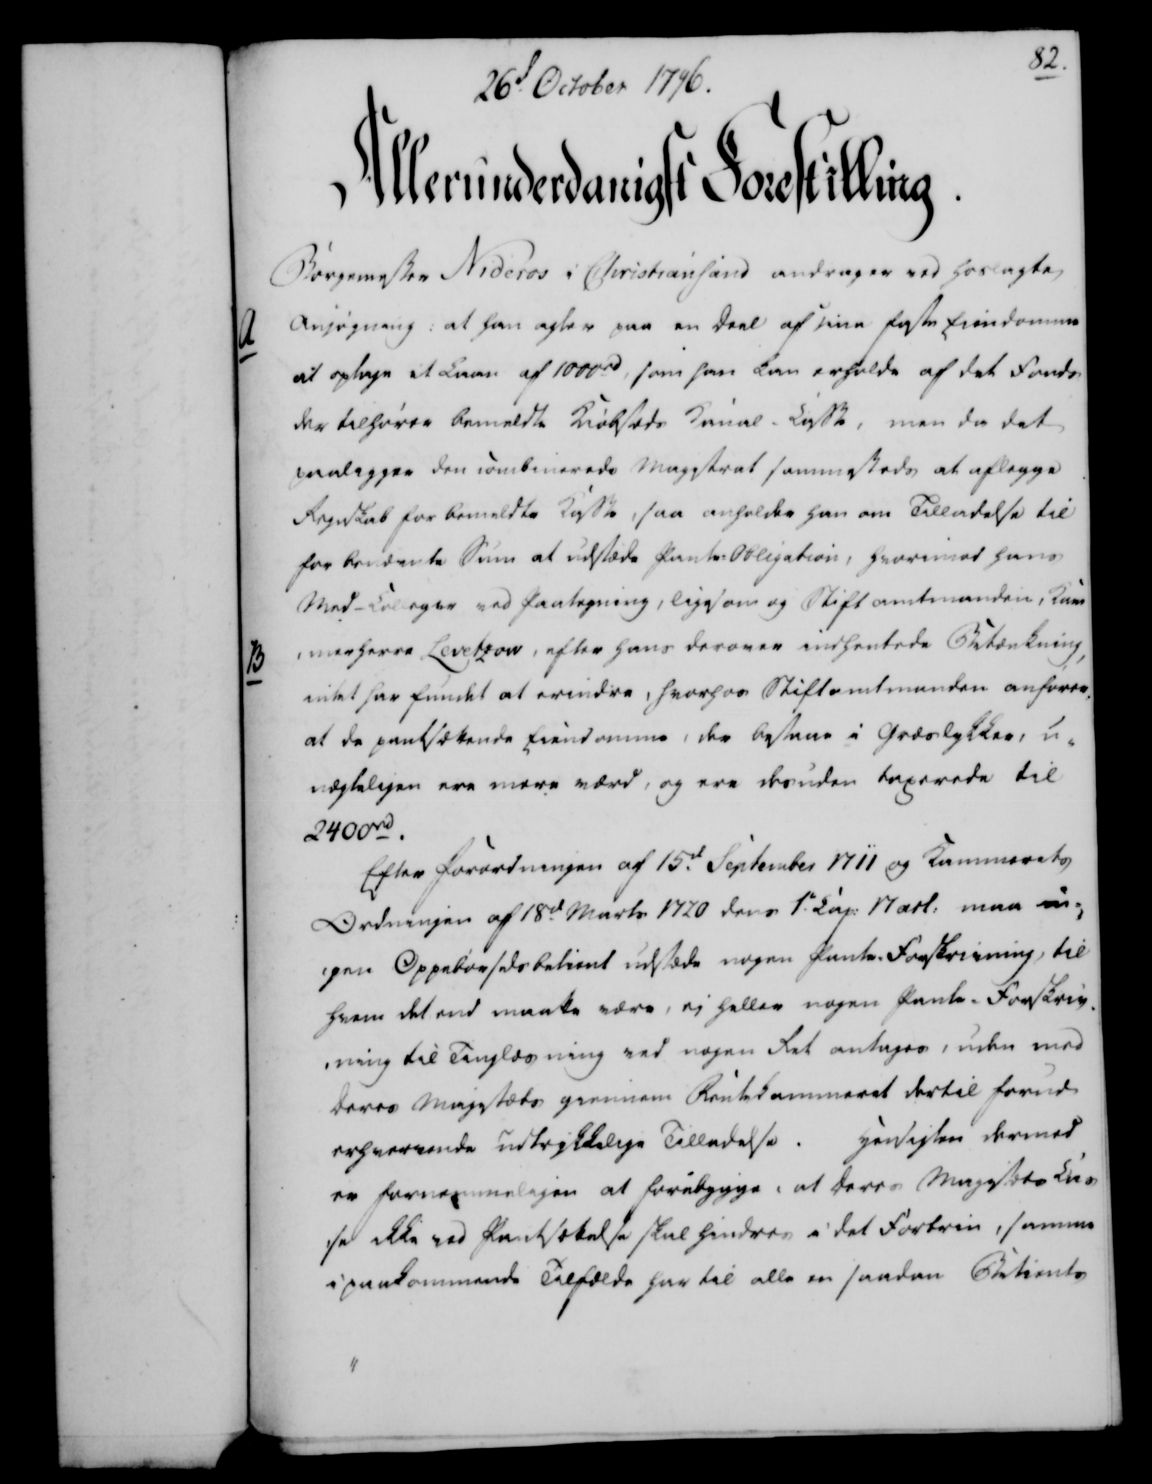 82.
26d. October 1796.
Allerunderdanigst Forestilling.
Borgemester Nideros i Christiansand andrager ved hoslagte
A
Ansøgning: at han agter paa en Deel af sine faste Eiendomme
at optage et Laan af 1000rd, som han kan erholde af det Fonds
der tilhører bemeldte Kiøbstæds Kanal-Casse, men da det
paaligger den combinerede Magistrat sammesteds at aflegge
Regnskab for bemeldte Kasse, saa anholder han om Tilladelse til
for benævnte Sum at udstæde Pante-Obligation, hvorimod hans
Med-Colleger ved Paategning, ligesom og Stiftamtmanden, Kam
B
merherre Levetzow, efter hans derover indhentede Betænkning,
intet har fundet at erindre, hvorhos Stiftamtmanden anfører,
at de pantsættende Eiendomme, der bestaae i Græslykker, u-
nægteligen ere mere værd, og ere desuden taxerede til
2400rd.
Efter Forordningen af 15d. September 1711 og Kammerets
Ordningen af 18d Marts 1720 dens 1. Cap: 17 art: maa in-
gen Oppebørselsbetient udstæde nogen Pante-Forskrivning, til
hvem det end maatte være, ej heller nogen Pante-Forskriv-
ning til Tinglæsning ved nogen Ret antages, uden med
Deres Majestæts giennem Rentekammeret dertil forud
erhvervende udtrykkelige Tilladelse. Hensigten dermed
er fornemmeligen at forebygge, at Deres Majestæts Cas
se ikke ved Pantsættelse skal hindres i det Fortrin, samme
i paakommende Tilfælde har til alle en saadan Betients